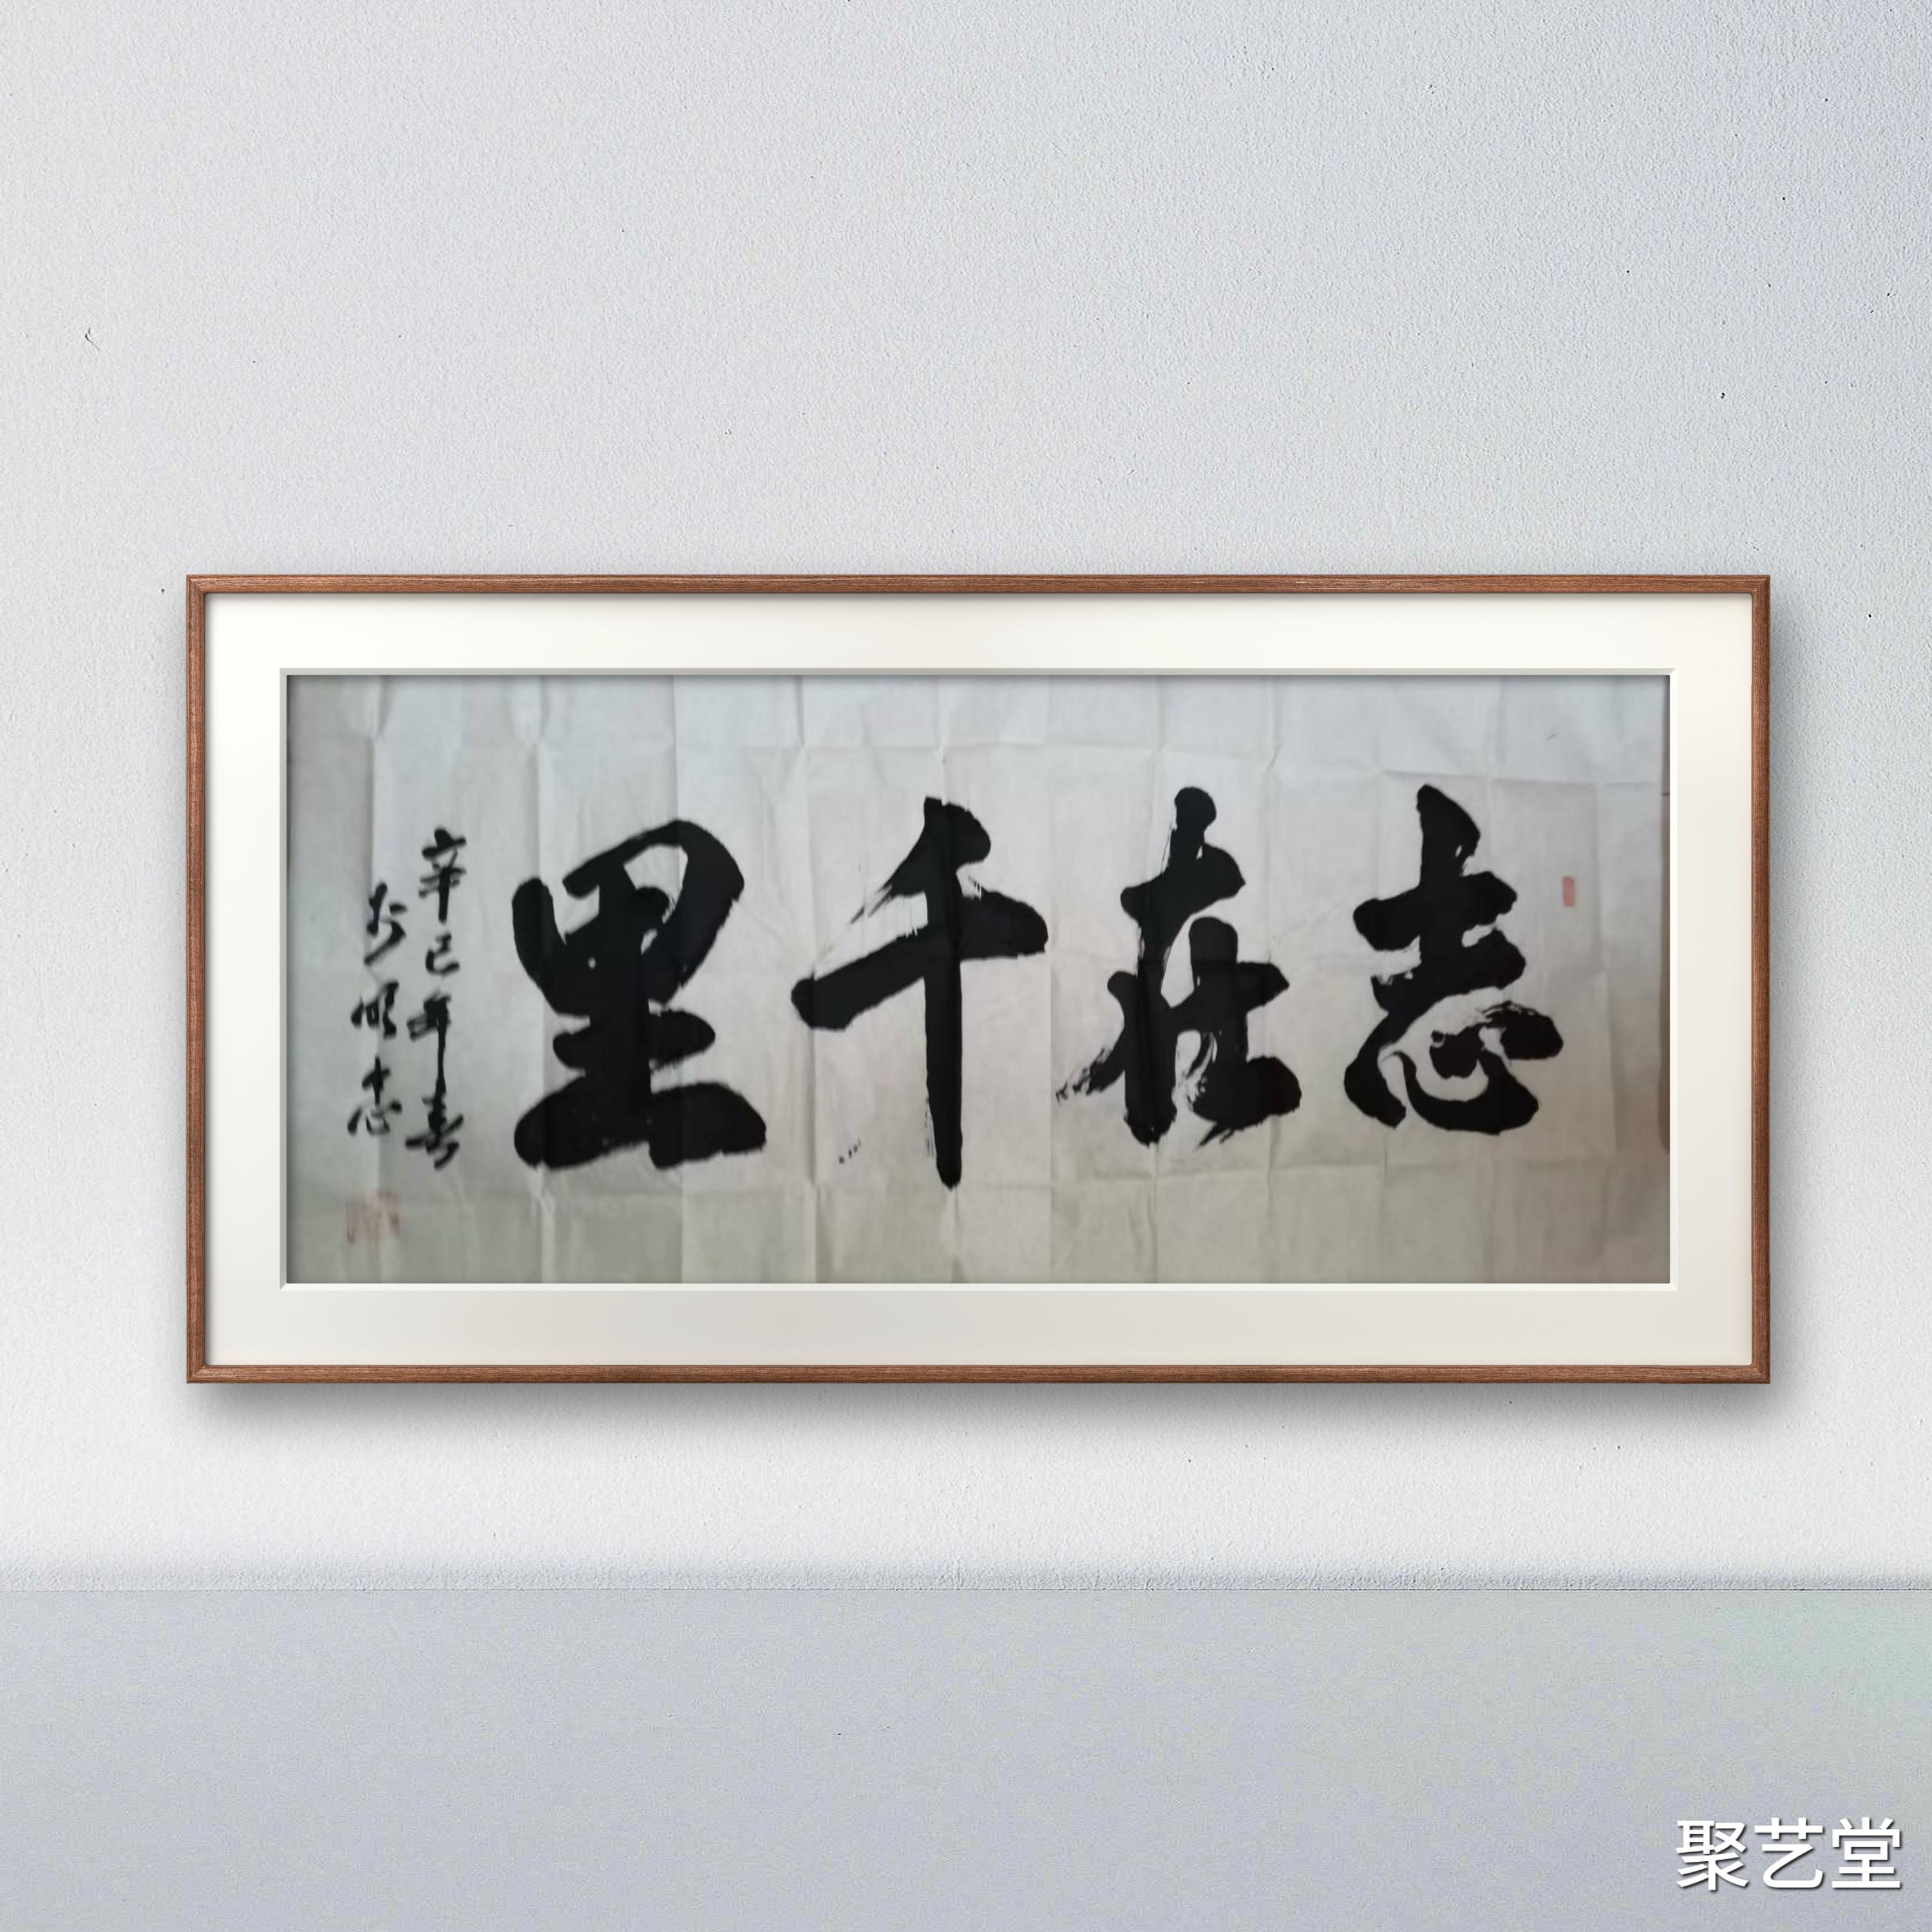 志在千里
辛巳年春
明志
聚艺堂